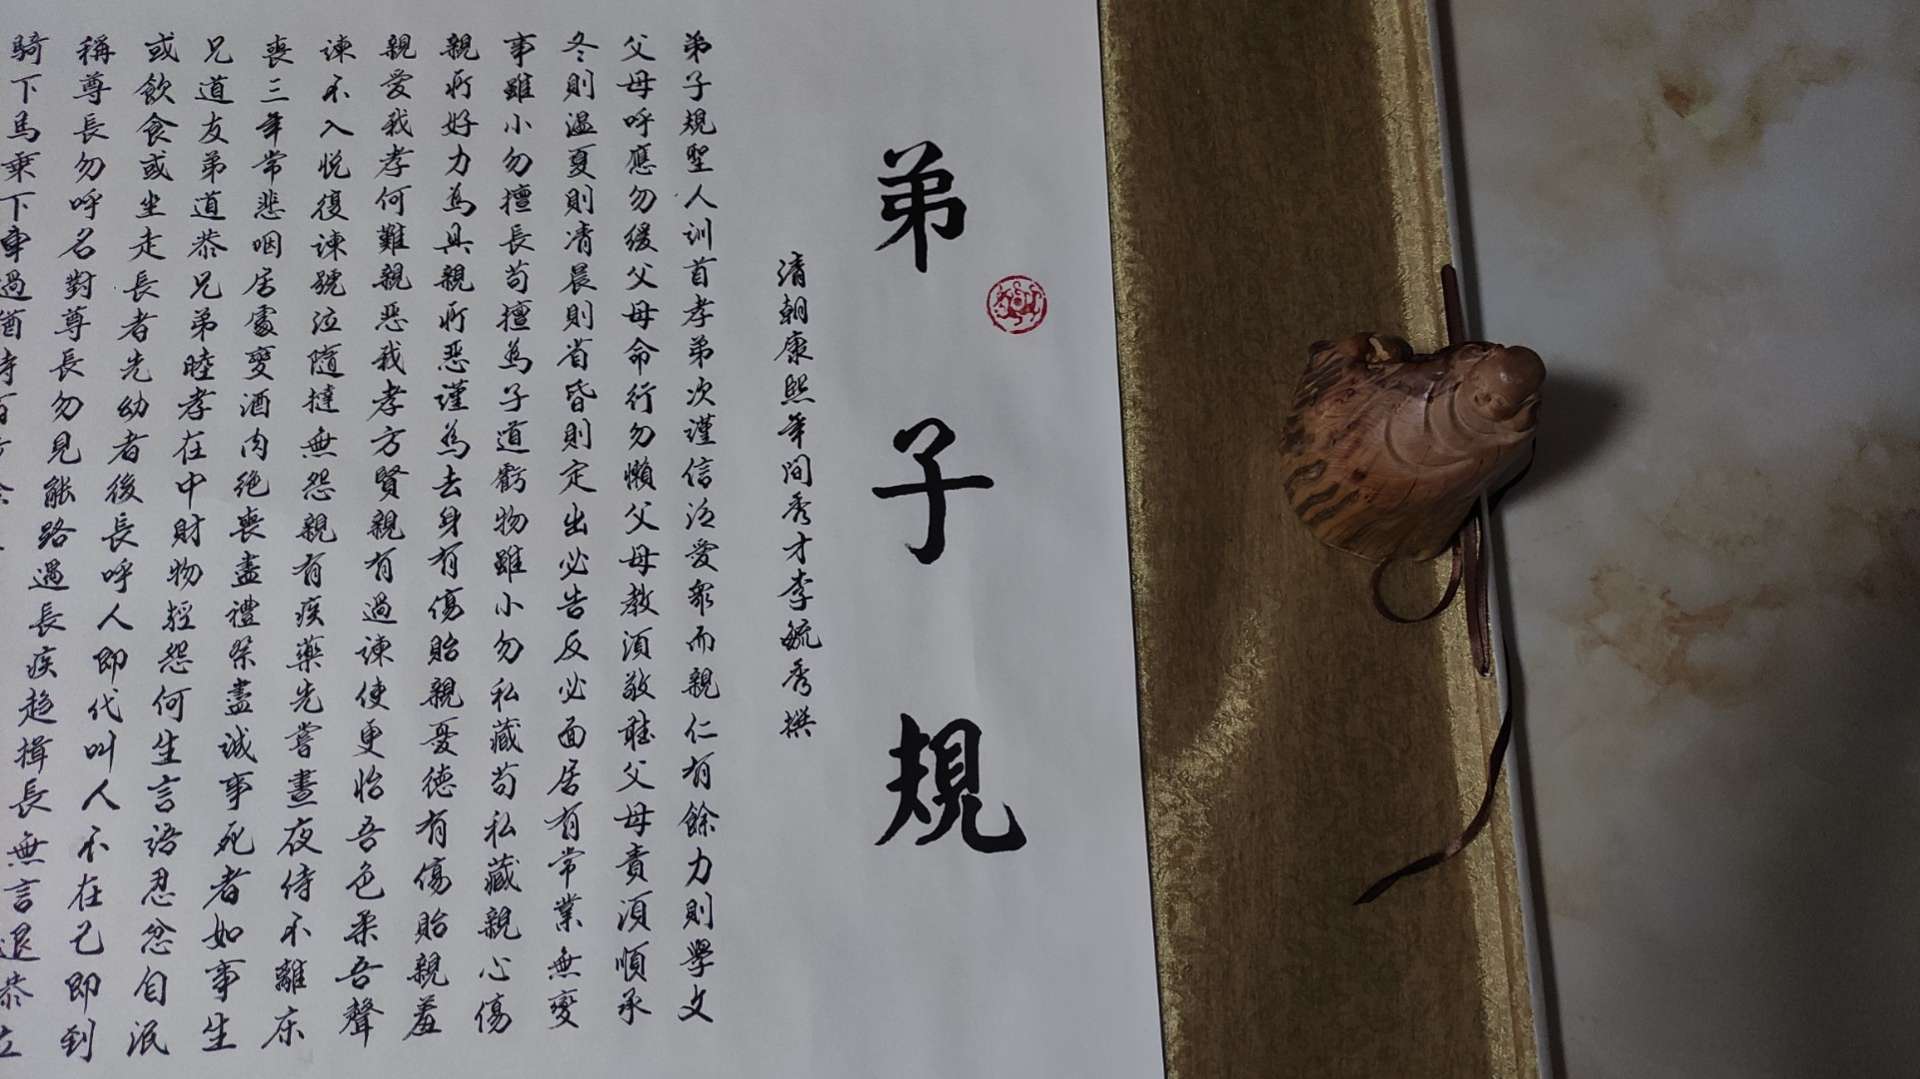 弟子規
清朝康熙年间秀才李毓秀撰
弟子規聖人训首孝弟次謹信泛愛眾而親仁有餘力則學文
父母呼應勿緩父母命行勿懶父母教須敬聽父母責須順承
冬則溫夏則凊晨則省昏則定出必告反必面居有常業無變
事雖小勿擅長苟擅為子道虧物雖小勿私藏苟私藏親心傷
親所好力為具親所惡謹為去身有傷貽親憂德有傷貽親羞
親愛我孝何難親惡我孝方賢親有過諫使更怡吾色柔吾聲
諫不入悅復諫號泣隨撻無怨親有疾藥先嘗晝夜侍不離床
喪三年常悲咽居處變酒肉絕喪盡禮祭盡誠事死者如事生
兄道友弟道恭兄弟睦孝在中財物輕怨何生言語忍忿自泯
或飲食或坐走長者先幼者後長呼人即代叫人不在己即到
稱尊長勿呼名對尊長勿見能路遇長疾趨揖長無言退恭立
騎下馬乘下車過猶待百